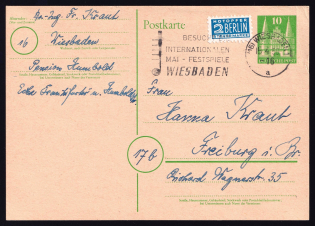 Dr.-Ing. Fr. Kraut
16 Wiesbaden
Pension Humboldt
Ecke Frankfurter u. Humboldtstr.
Postkarte
NOTOPFER
2 BERLIN
STEUERMARKE
10
BESUCHT
INTERNATIONALEN
MAI - FESTSPIELE
WIESBADEN
a
Frau
Hanna Kraut
17b Freiburg i. Br.
Richard Wagnerstr. 35